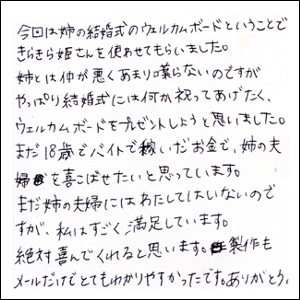 今回は姉の結婚式のウェルカムボードということで
きらきら姫さんを使わせてもらいました。
姉とは仲が悪くあまり喋らないのですが
やっぱり結婚式には何か祝ってあげたく、
ウェルカムボードをプレゼントしようと思いました。
まだ18歳でバイトで稼いだお金で、姉の夫
婦を喜こばせたいと思っています。
まだ姉の夫婦にはわたしてはいないので
すが、私はすごく満足しています。
絶対喜んでくれると思います。製作も
メールだけでとてもわかりやすかったです。ありがとう。